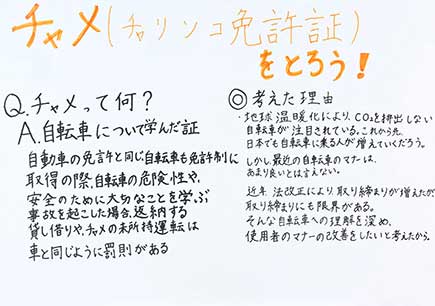 チャメ(チャリンコ免許証)
をとろう!
Q.チャメって何?
A.自転車について学んだ証
自動車の免許と同じ自転車も免許制に
取得の際、自転車の危険性や、
安全のために大切なことを学ぶ
事故を起こした場合、返納する
貸し借りや、チャメの未所持運転は
車と同じように罰則がある
◎考えた理由
・地球温暖化により、CO₂を排出しない
自転車が注目されている。これから先、
日本でも自転車に乗る人が増えていくだろう。
しかし最近の自転車のマナーは、
あまり良いとは言えない。
近年 法改正により、取り締まりが増えたが
取り締まりにも限界がある。
そんな自転車への理解を深め、
使用者のマナーの改善をしたいと考えたから。